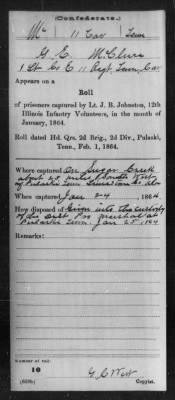 (Confederate.)
Mc 11 Cav Tenn
G. E. McClure
1 Lt Co. E 11 Regt. Tenn. Cav.
Appears on a
Roll
of prisoners captured by Lt. J. B. Johnston, 12th
Illinois Infantry Volunteers, in the month of
January, 1864.
Roll dated Hd. Qrs. 2d Brig., 2d Div., Pulaski,
Tenn., Feb. 1, 1864.
Where captured On Sugar Creek
about 25 miles South West
of Pulaski Tenn
When captured Jan 24, 1864
How disposed of Given into the custody
of the Dist. Pro. marshal at
Pulaski Tenn. Jan 25, 1864
Remarks:
Number of roll
10
(639b)
G. C. West
Copyist.